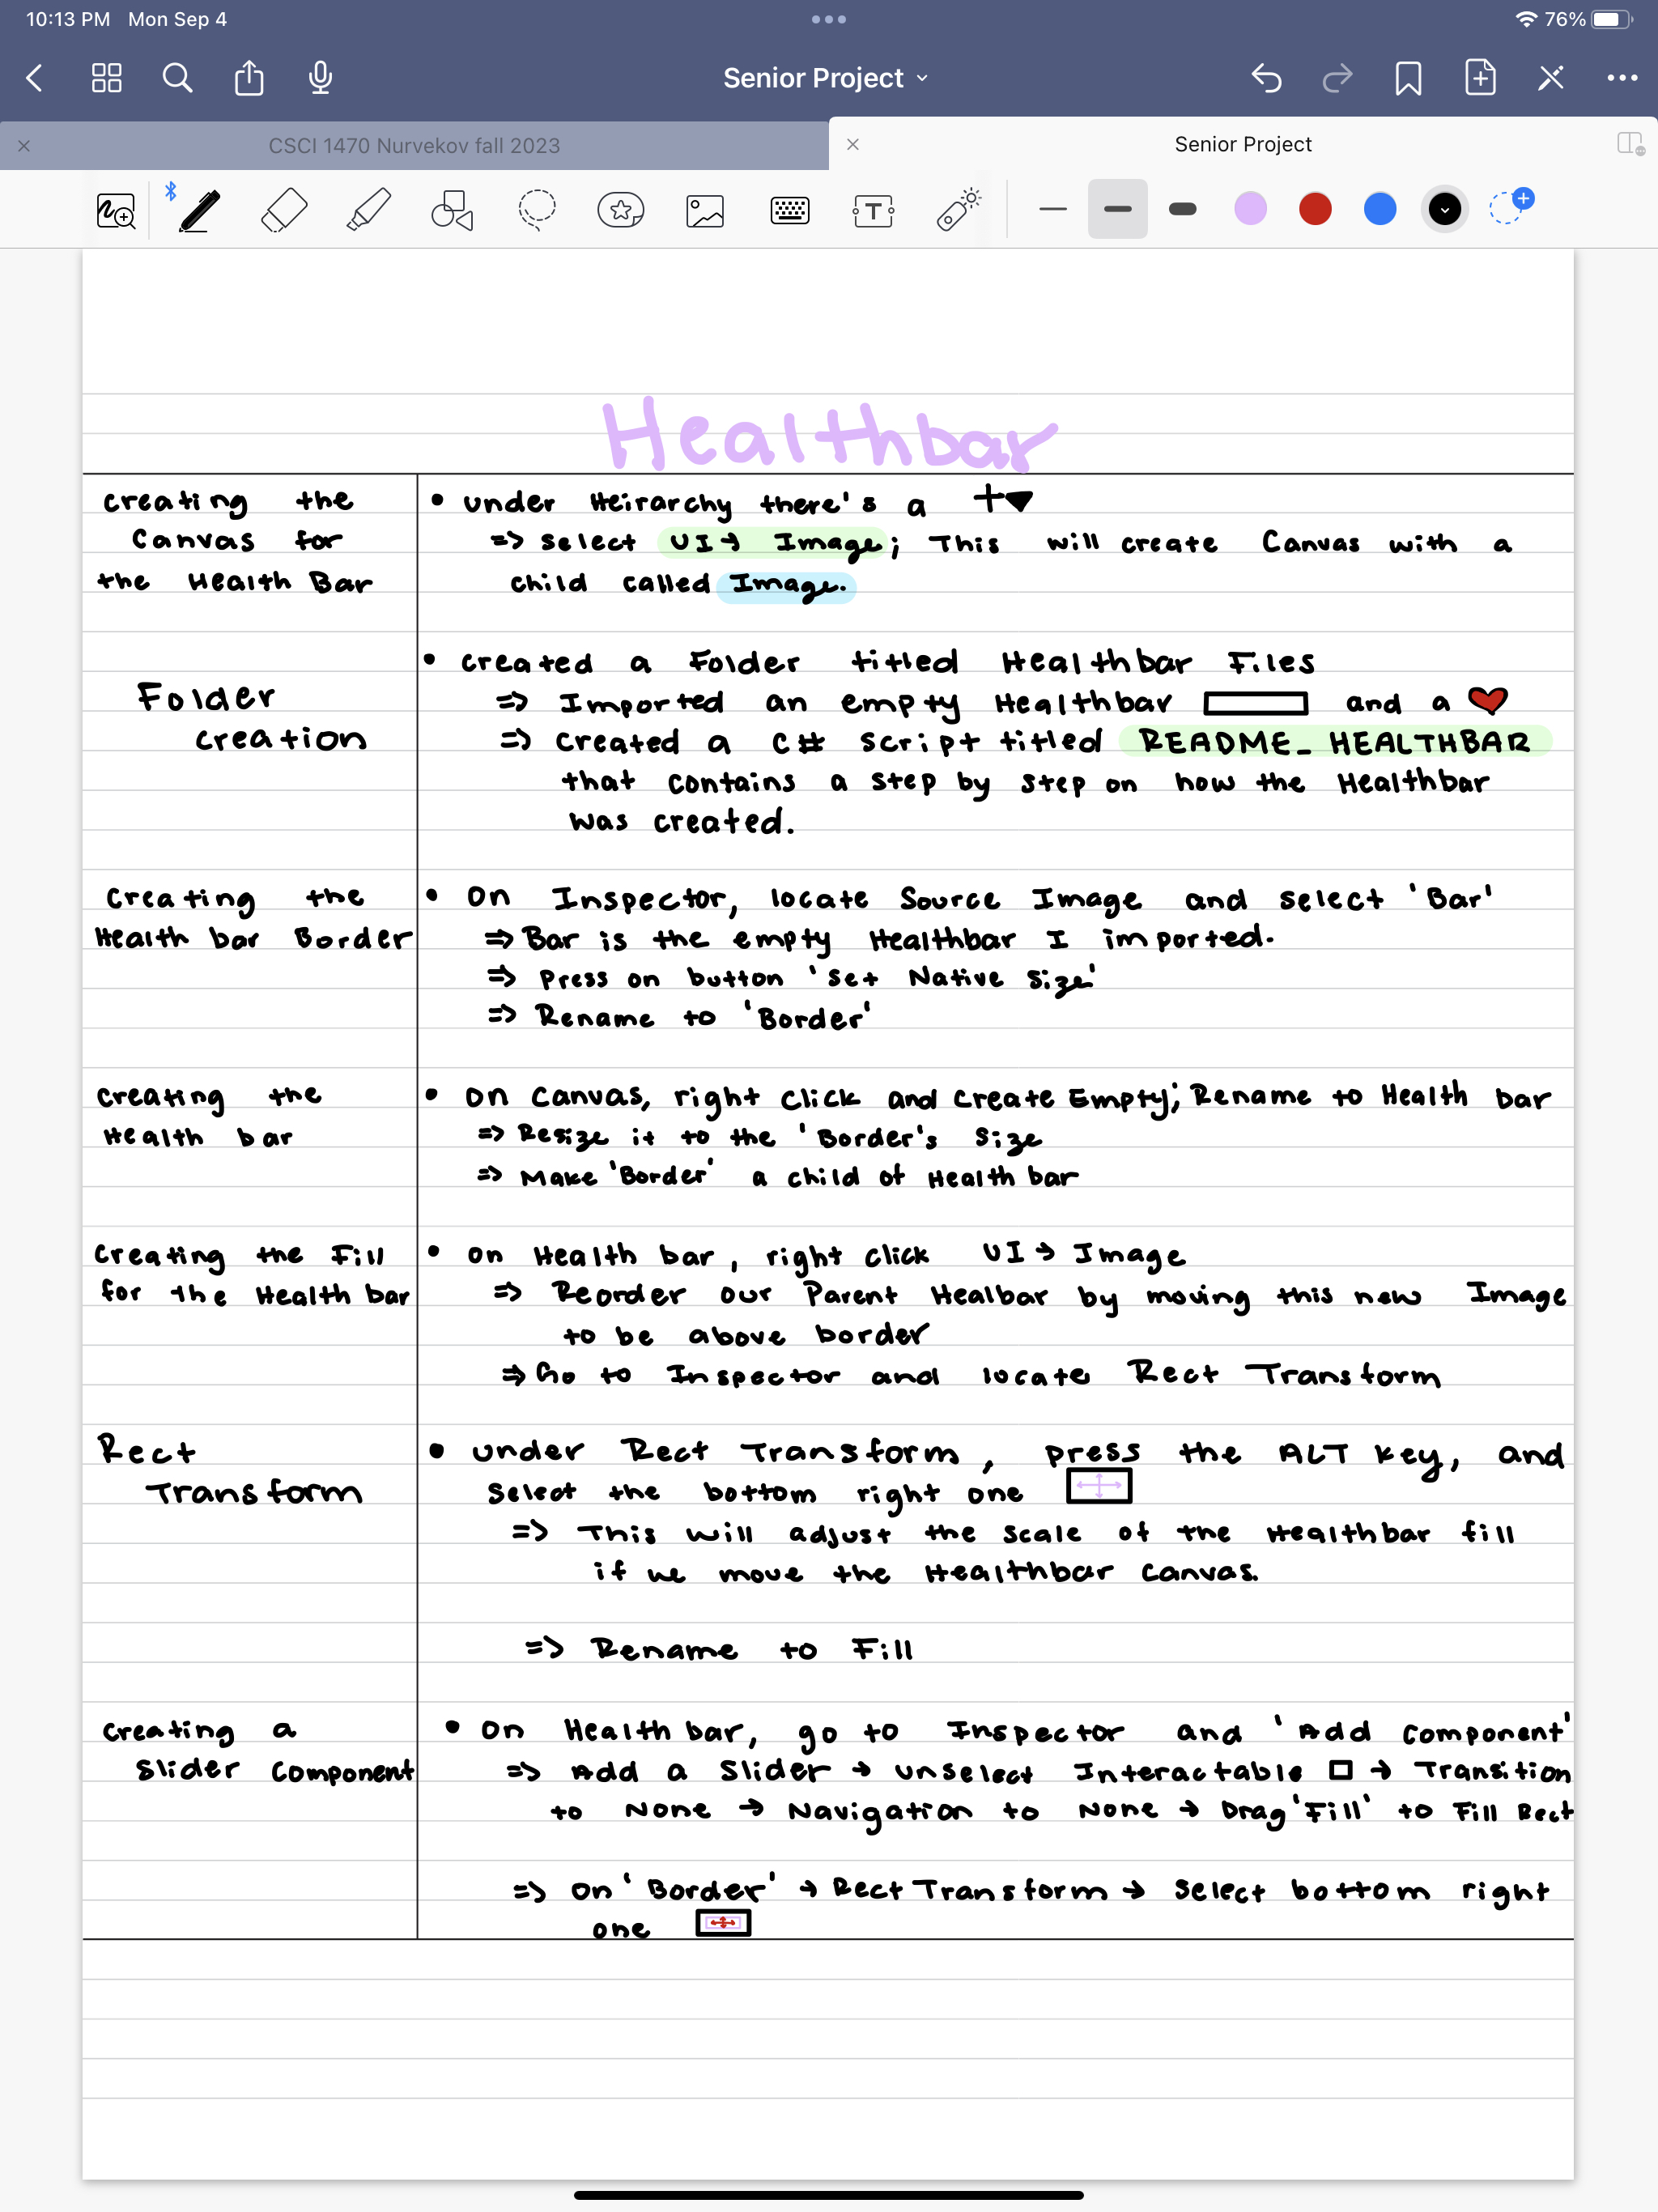 10:13 PM Mon Sep 4
76%
Senior Project
CSCI 1470 Nurvekov fall 2023
Senior Project
Healthbar
creating the
Canvas for
the Health Bar
• under Heirarchy there's a +▼
=> select UI → Image; This will create Canvas with a
child called Image.
Folder
creation
• created a Folder titled Healthbar Files
=> Imported an empty Healthbar and a ❤
=> created a C# script titled README_HEALTHBAR
that contains a step by step on how the Healthbar
was created.
creating the
Health bar Border
• on Inspector, locate Source Image and select 'Bar'
=> Bar is the empty Healthbar I imported.
=> press on button 'Set Native Size'
=> Rename to 'Border'
creating the
Health bar
• on Canvas, right click and create Empty; Rename to Health bar
=> Resize it to the 'Border's size
=> Make 'Border' a child of Health bar
creating the Fill
for the Health bar
• on Health bar, right click UI → Image
=> Reorder our Parent Healbar by moving this new Image
to be above border
=> Go to Inspector and locate Rect Transform
Rect
Transform
• under Rect Transform, press the ALT key, and
select the bottom right one
=> This will adjust the scale of the Healthbar fill
if we move the Healthbar canvas.
=> Rename to Fill
creating a
slider component
• on Health bar, go to Inspector and 'Add component'
=> Add a Slider → unselect Interactable □ → Transition
to None → Navigation to None → Drag 'Fill' to Fill Rect
=> on 'Border' → Rect Transform → select bottom right
one